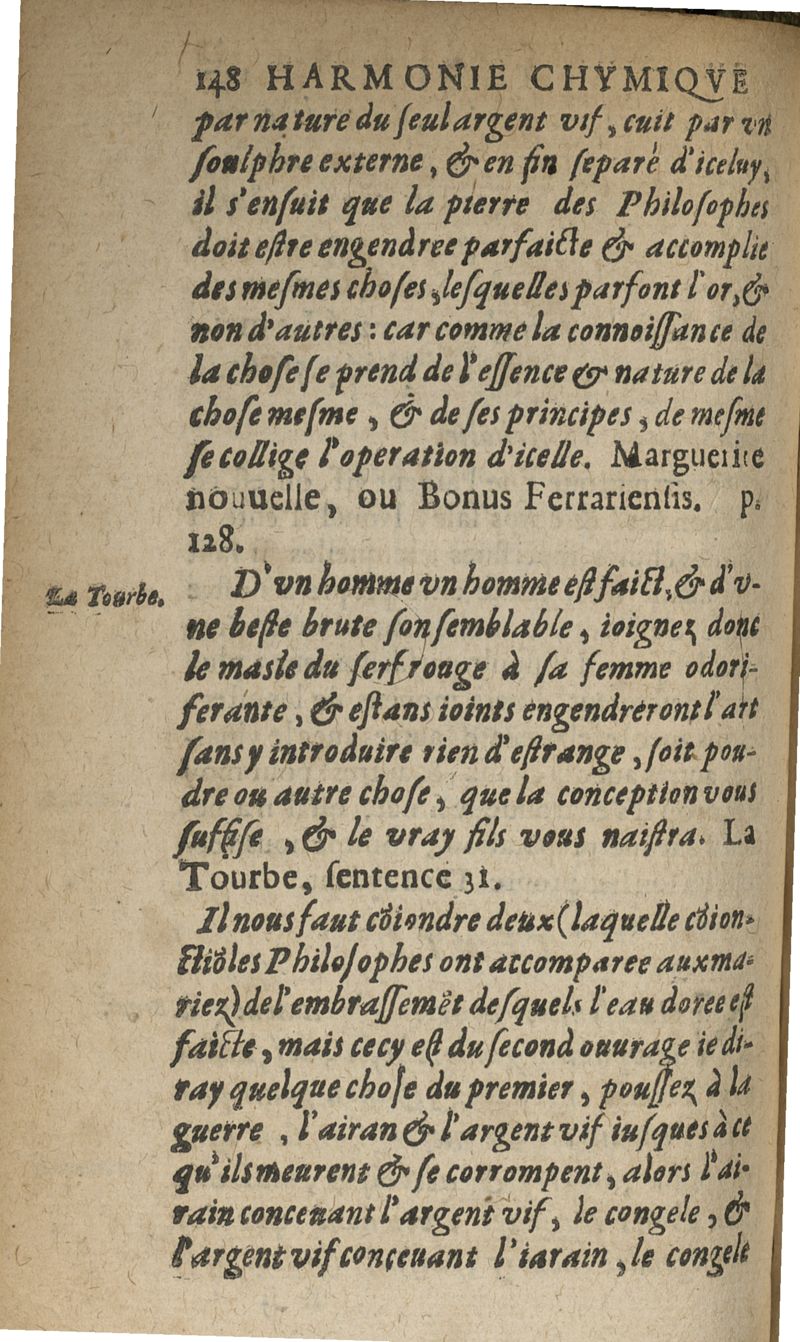 148 HARMONIE CHYMIQVE
par nature du ſeul argent vif, cuit par vn
ſoulphre externe, & en fin ſeparé d'iceluy,
il s'enſuit que la pierre des Philoſophes
doit eſtre engendree parfaicte & accomplie
des meſmes choſes, leſquelles parfont l'or, &
non d'autres : car comme la connoiſſance de
la choſe ſe prend de l'eſſence & nature de la
choſe meſme, & de ſes principes, de meſme
ſe collige l'operation d'icelle. Marguerite
nouuelle, ou Bonus Ferrarienſis. p.
128.
La Tourbe.
D'vn homme vn homme eſt faict, & d'v-
ne beſte brute ſon ſemblable, ioignez donc
le maſle du ſerf rouge à ſa femme odori-
ferante, & eſtans ioints engendreront l'art
ſans y introduire rien d'eſtrange, ſoit pou-
dre ou autre choſe, que la conception vous
ſuffiſe, & le vray fils vous naiſtra. La
Tourbe, ſentence 31.
Il nous faut cõiondre deux (laquelle cõion-
ctiõ les Philoſophes ont accomparee aux ma-
riez) de l'embraſſemẽt deſquels l'eau doree eſt
faicte, mais cecy eſt du ſecond ouurage ie di-
ray quelque choſe du premier, pouſſez à la
guerre, l'airan & l'argent vif iuſques à ce
qu'ils meurent & ſe corrompent, alors l'ai-
rain conceuant l'argent vif, le congele, &
l'argent vif conçeuant l'iarain, le congele